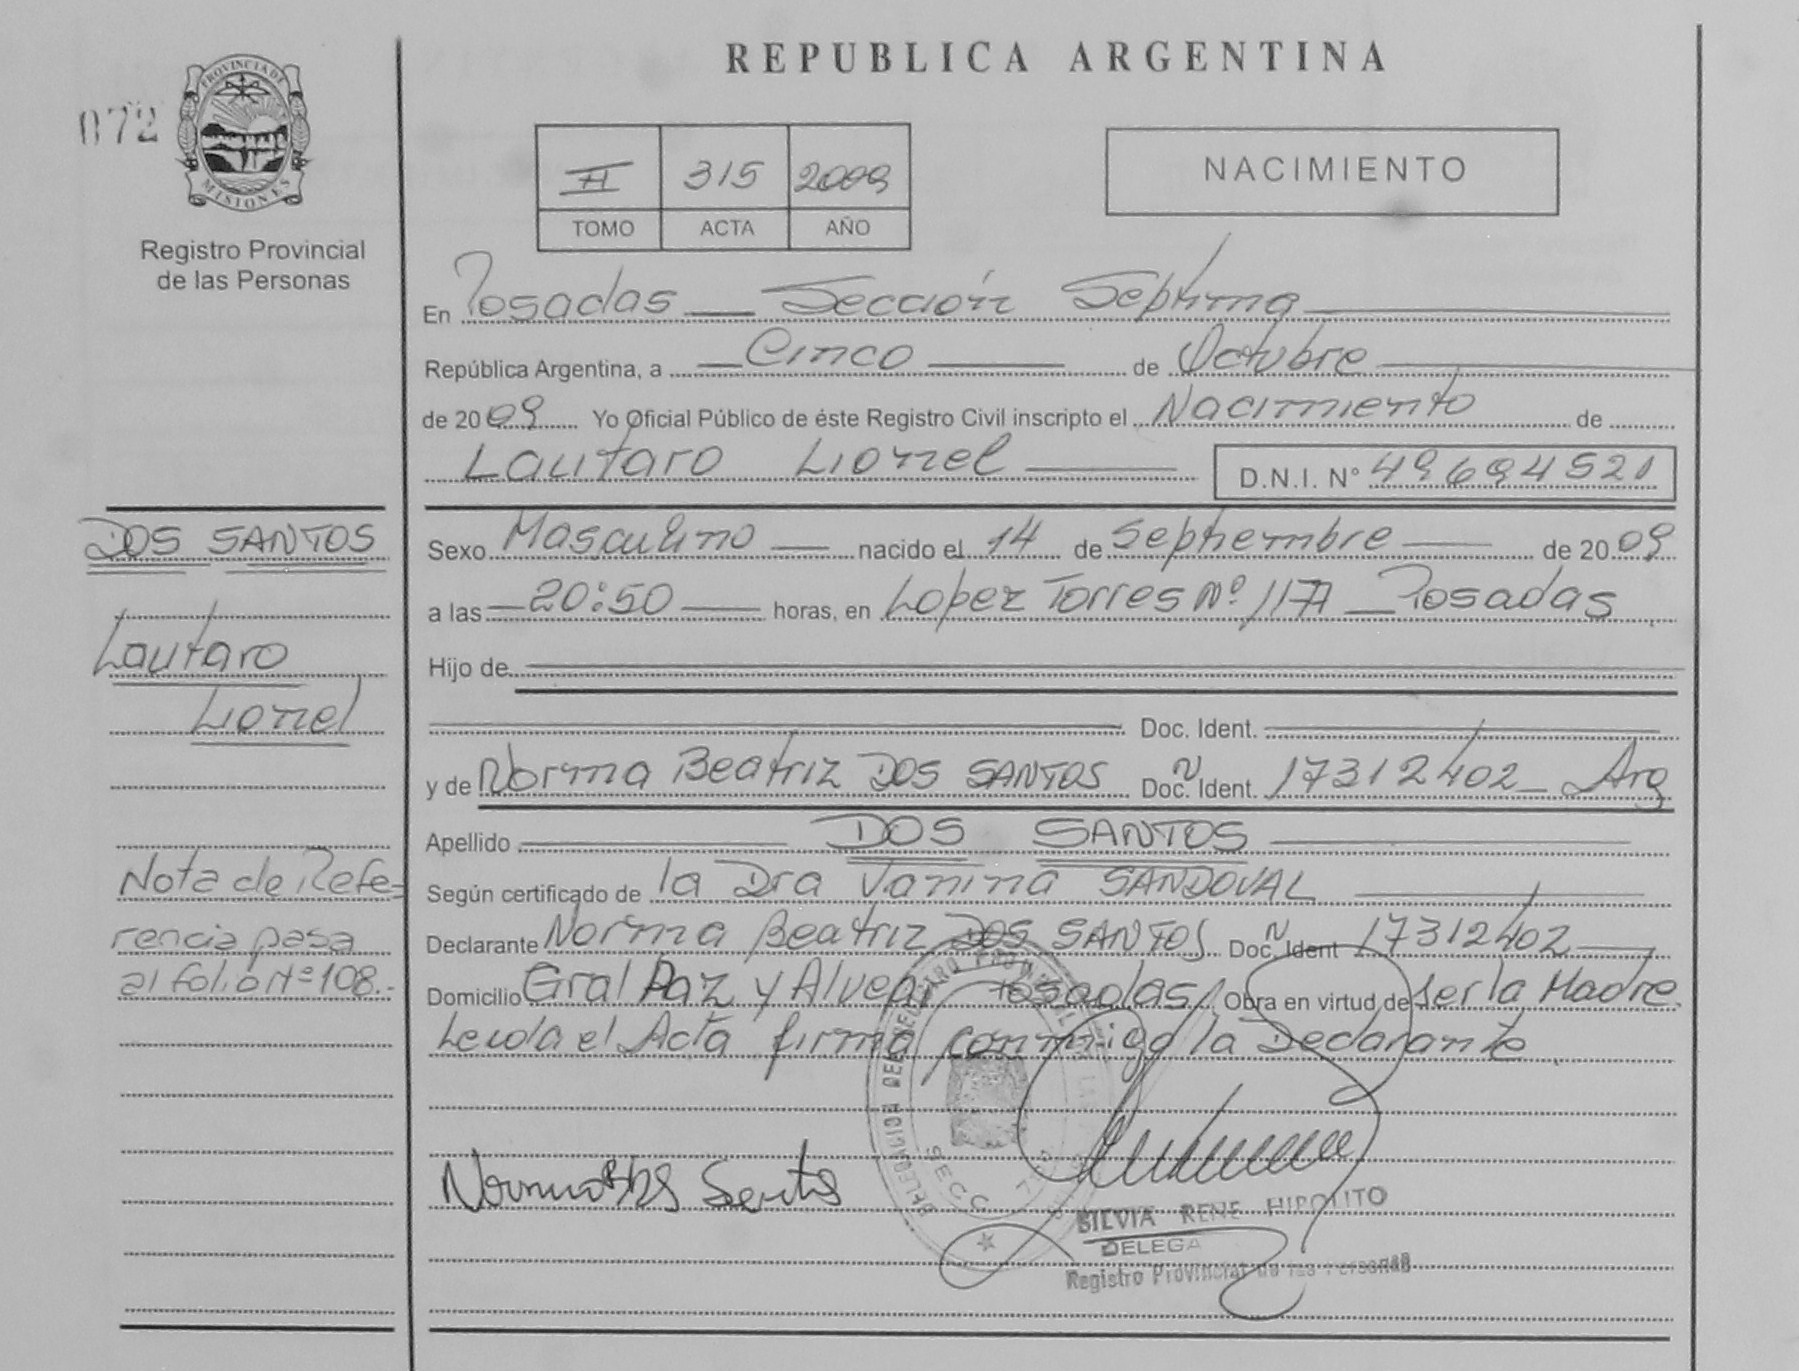 072
PROVINCIA DE
MISIONES
Registro Provincial
de las Personas
REPUBLICA ARGENTINA
II 315 2009
TOMO ACTA AÑO
NACIMIENTO
En Posadas — Sección Séptima
República Argentina, a — Cinco — de Octubre
de 2009 Yo Oficial Público de éste Registro Civil inscripto el Nacimiento de
Lautaro Lionel — D.N.I. Nº 49694521
Sexo Masculino — nacido el 14 de Septiembre — de 2009
a las — 20:50 — horas, en Lopez Torres Nº 1177 — Posadas
Hijo de
Doc. Ident.
y de Norma Beatriz DOS SANTOS Doc. Ident. 17312402 — Arg
Apellido — DOS SANTOS
Según certificado de la Dra Vanina SANDOVAL
Declarante Norma Beatriz DOS SANTOS Doc. Ident 17312402 —
Domicilio Gral Paz y Alvear Posadas Obra en virtud de ser la Madre.
Leida el Acta firma conmigo la Declarante
DOS SANTOS
Lautaro
Lionel
Nota de Refe=
rencia pasa
al folio Nº 108.-
SECC.
SILVIA RENE HIPOLITO
DELEGA
Registro Provincial de las Personas